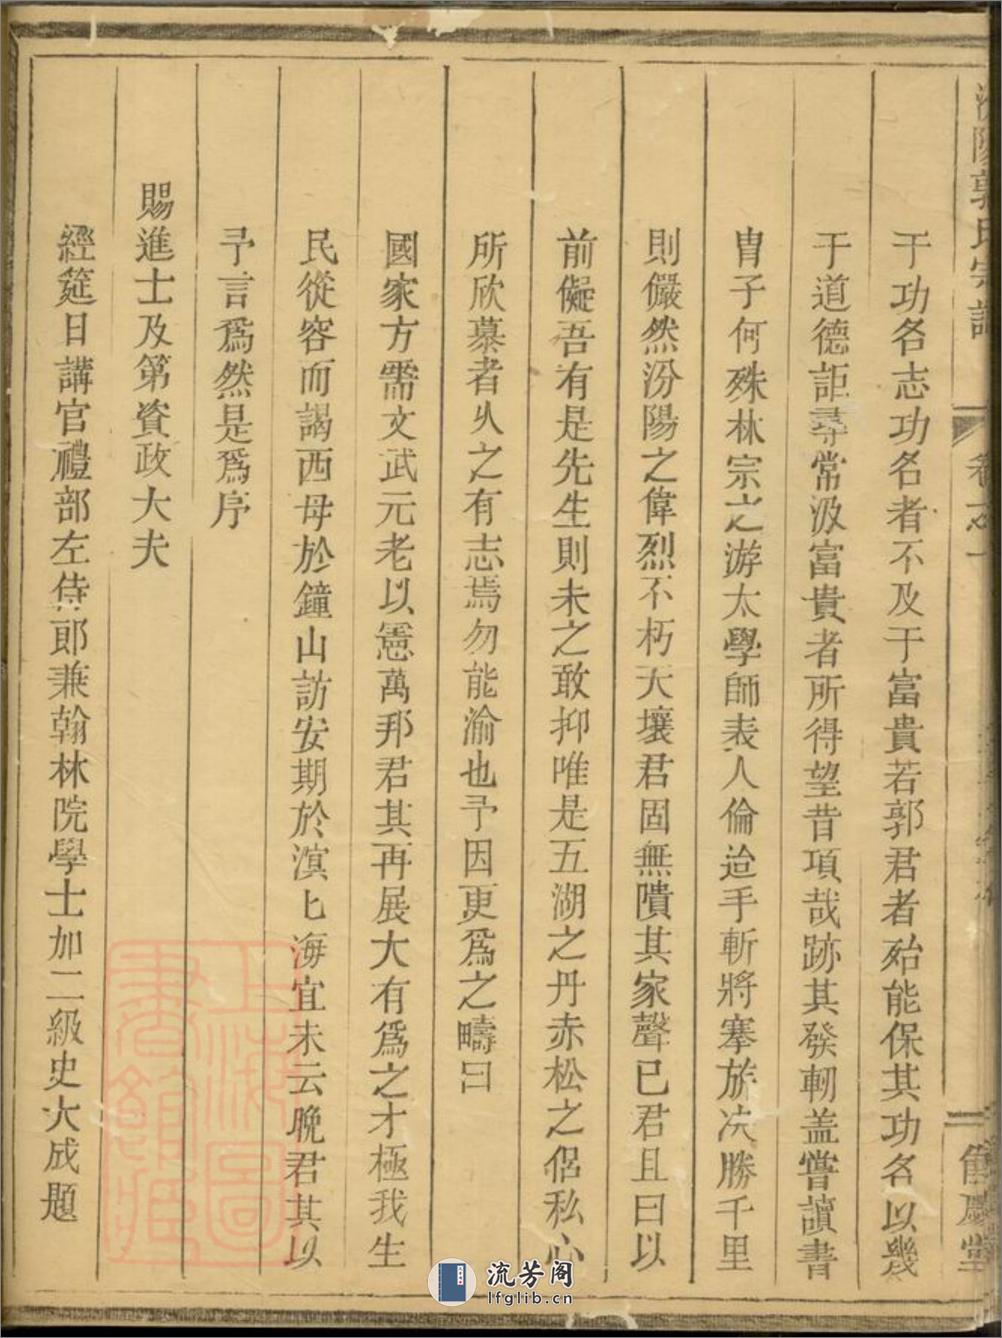 汾陽郭氏宗譜 卷之一
于功名志功名者不及于富貴若郭君者殆能保其功名以幾
于道德詎尋常汲富貴者所得望昔項哉跡其發軔盖嘗讀書
胄子何殊林宗之游太學師表人倫迨手斬將搴旂决勝千里
則儼然汾陽之偉烈不朽天壤君固無隤其家聲已君且曰以
前儗吾有是先生則未之敢抑唯是五湖之丹赤松之侣私心
所欣慕者乆之有志焉勿能渝也予因更爲之疇曰
國家方需文武元老以憲萬邦君其再展大有爲之才極我生
民從容而謁西母於鐘山訪安期於溟匕海宜未云晚君其以
予言爲然是爲序
賜進士及第資政大夫
經筵日講官禮部左侍郎兼翰林院學士加二級史大成題
上海圖書館藏
流芳阁
lfglib.cn